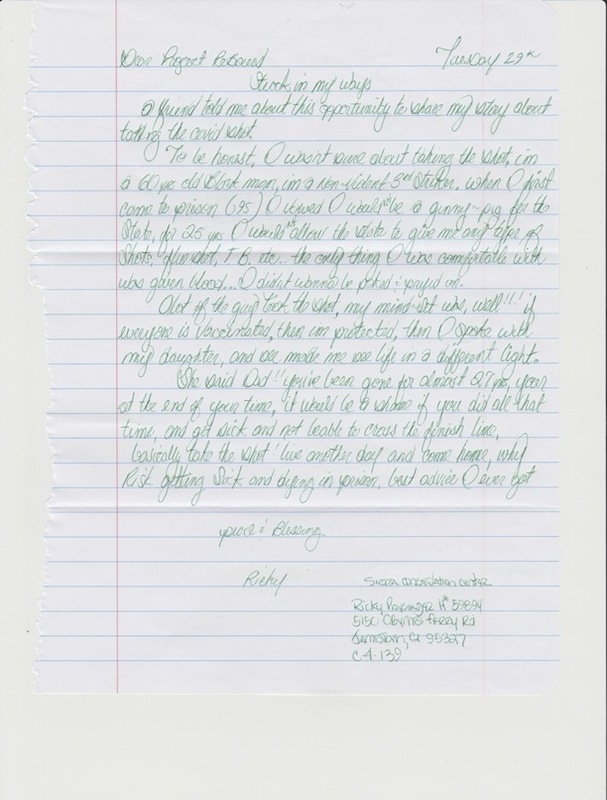 Dear Project Rebound
Tuesday 29th
Stuck in my ways
a friend told me about this opportunity to share my story about
taking the covid shot
To be honest, I wasn't sure about taking the shot, im
a 60 yrs old Black man, im a non-violent 3rd Striker. when I first
came to prison (95) I vowed I would be a ginny-pig for the
State, for 25 yrs I would allow the state to give me any type of
Shots. flu shot, T.B. etc.. the only thing I was comfortable with
was given blood... I didn't wanna be poked &
alot of the guys took the shot, my mind-set was, well!!! if
everyone is vaccinated, then im protected, then I spoke with
my daughter, and she made me see life in a different light.
She said Dad!! you've been gone for almost 27 yrs, your
at the end of your time, it would be a shame if you did all that
time, and get sick and not be able to cross the finish line,
basically take the shot! live another day and come home, why
Risk getting Sick and dying in prison, best advice I ever got
peace & Blessing
Ricky
Sierra Conservation Center
Ricky H# 59894
5150 O'Byrnes Ferry Rd
Jamestown, Ca 95327
C-4-139